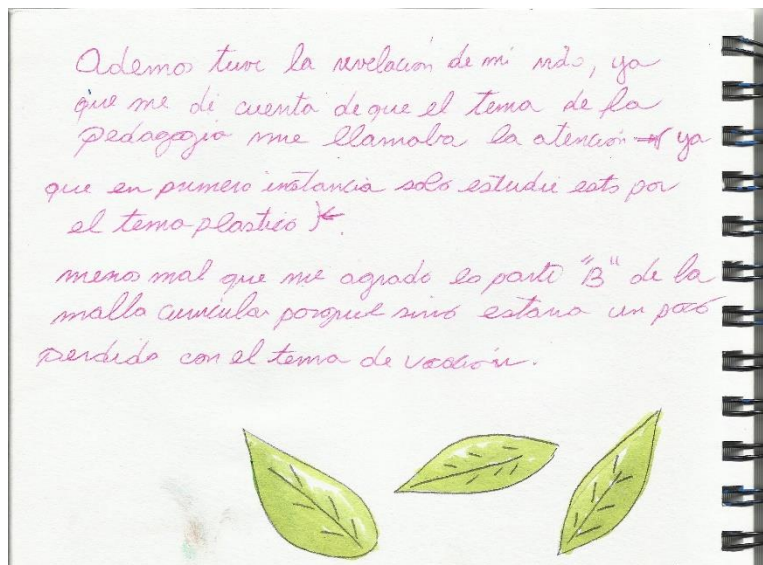 Ademas tuve la revelación de mi vida, ya
que me di cuenta de que el tema de la
pedagogia me llamaba la atención (ya
que en primera instancia solo estudie esto por
el tema plastico)
menos mal que me agrado la parte "B" de la
malla curricular porque sino estaria un poco
perdida con el tema de vocación.